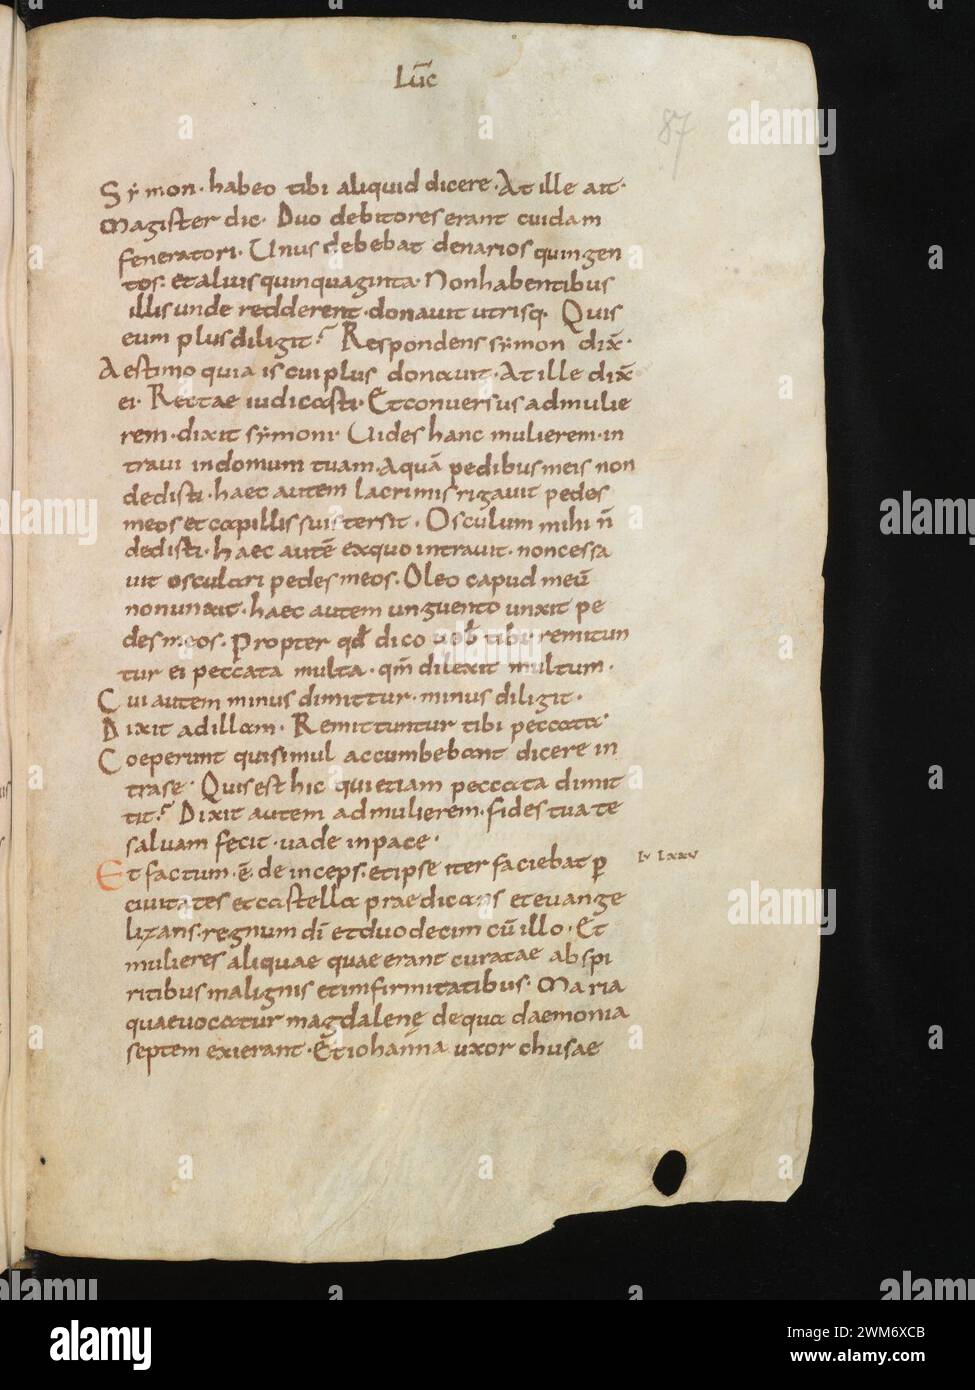 Lūc
87
Symon · habeo tibi aliquid dicere · At ille ait ·
Magister dic · Duo debitores erant cuidam
feneratori · Unus debebat denarios quingen
tos : et alius quinquaginta · Non habentibus
illis unde redderent · donavit utrisq; · Quis
eum plus diligit ? Respondens symon dix̄ ·
Aestimo quia is cui plus donavit · At ille dix̄
ei · Rectae iudicasti · Et conversus ad mulie
rem · dixit symoni · Uides hanc mulierem · in
travi in domum tuam · Aquā pedibus meis non
dedisti · haec autem lacrimis rigavit pedes
meos et capillis suis tersit · Osculum mihi ñ
dedisti · haec autē ex quo intravit · non cessa
uit osculari pedes meos · Oleo capud meū
non unxit · haec autem unguento unxit pe
des meos · Propter qđ dico uob tibi remitun
tur ei peccata multa · qm̄ dilexit multum ·
Cui autem minus dimittur · minus diligit ·
Dixit ad illam · Remittuntur tibi peccata ·
Coeperunt qui simul accumbebant dicere in
tra se · Quis est hic qui etiam peccata dimit
tit ? Dixit autem ad mulierem · fides tua te
salvam fecit · uade in pace ·
Et factum · ē · deinceps · et ipse iter faciebat ꝑ
lv lxxv
civitates et castella praedicans et evange
lizans · regnum dī et duodecim cū illo · Et
mulieres aliquae quae erant curatae ab spi
ritibus malignis et infirmitatibus · Maria
quae vocatur magdalenę de qua daemonia
septem exierant · Et iohanna uxor chusae
alamy
Image ID: 2WM6XCB
www.alamy.com